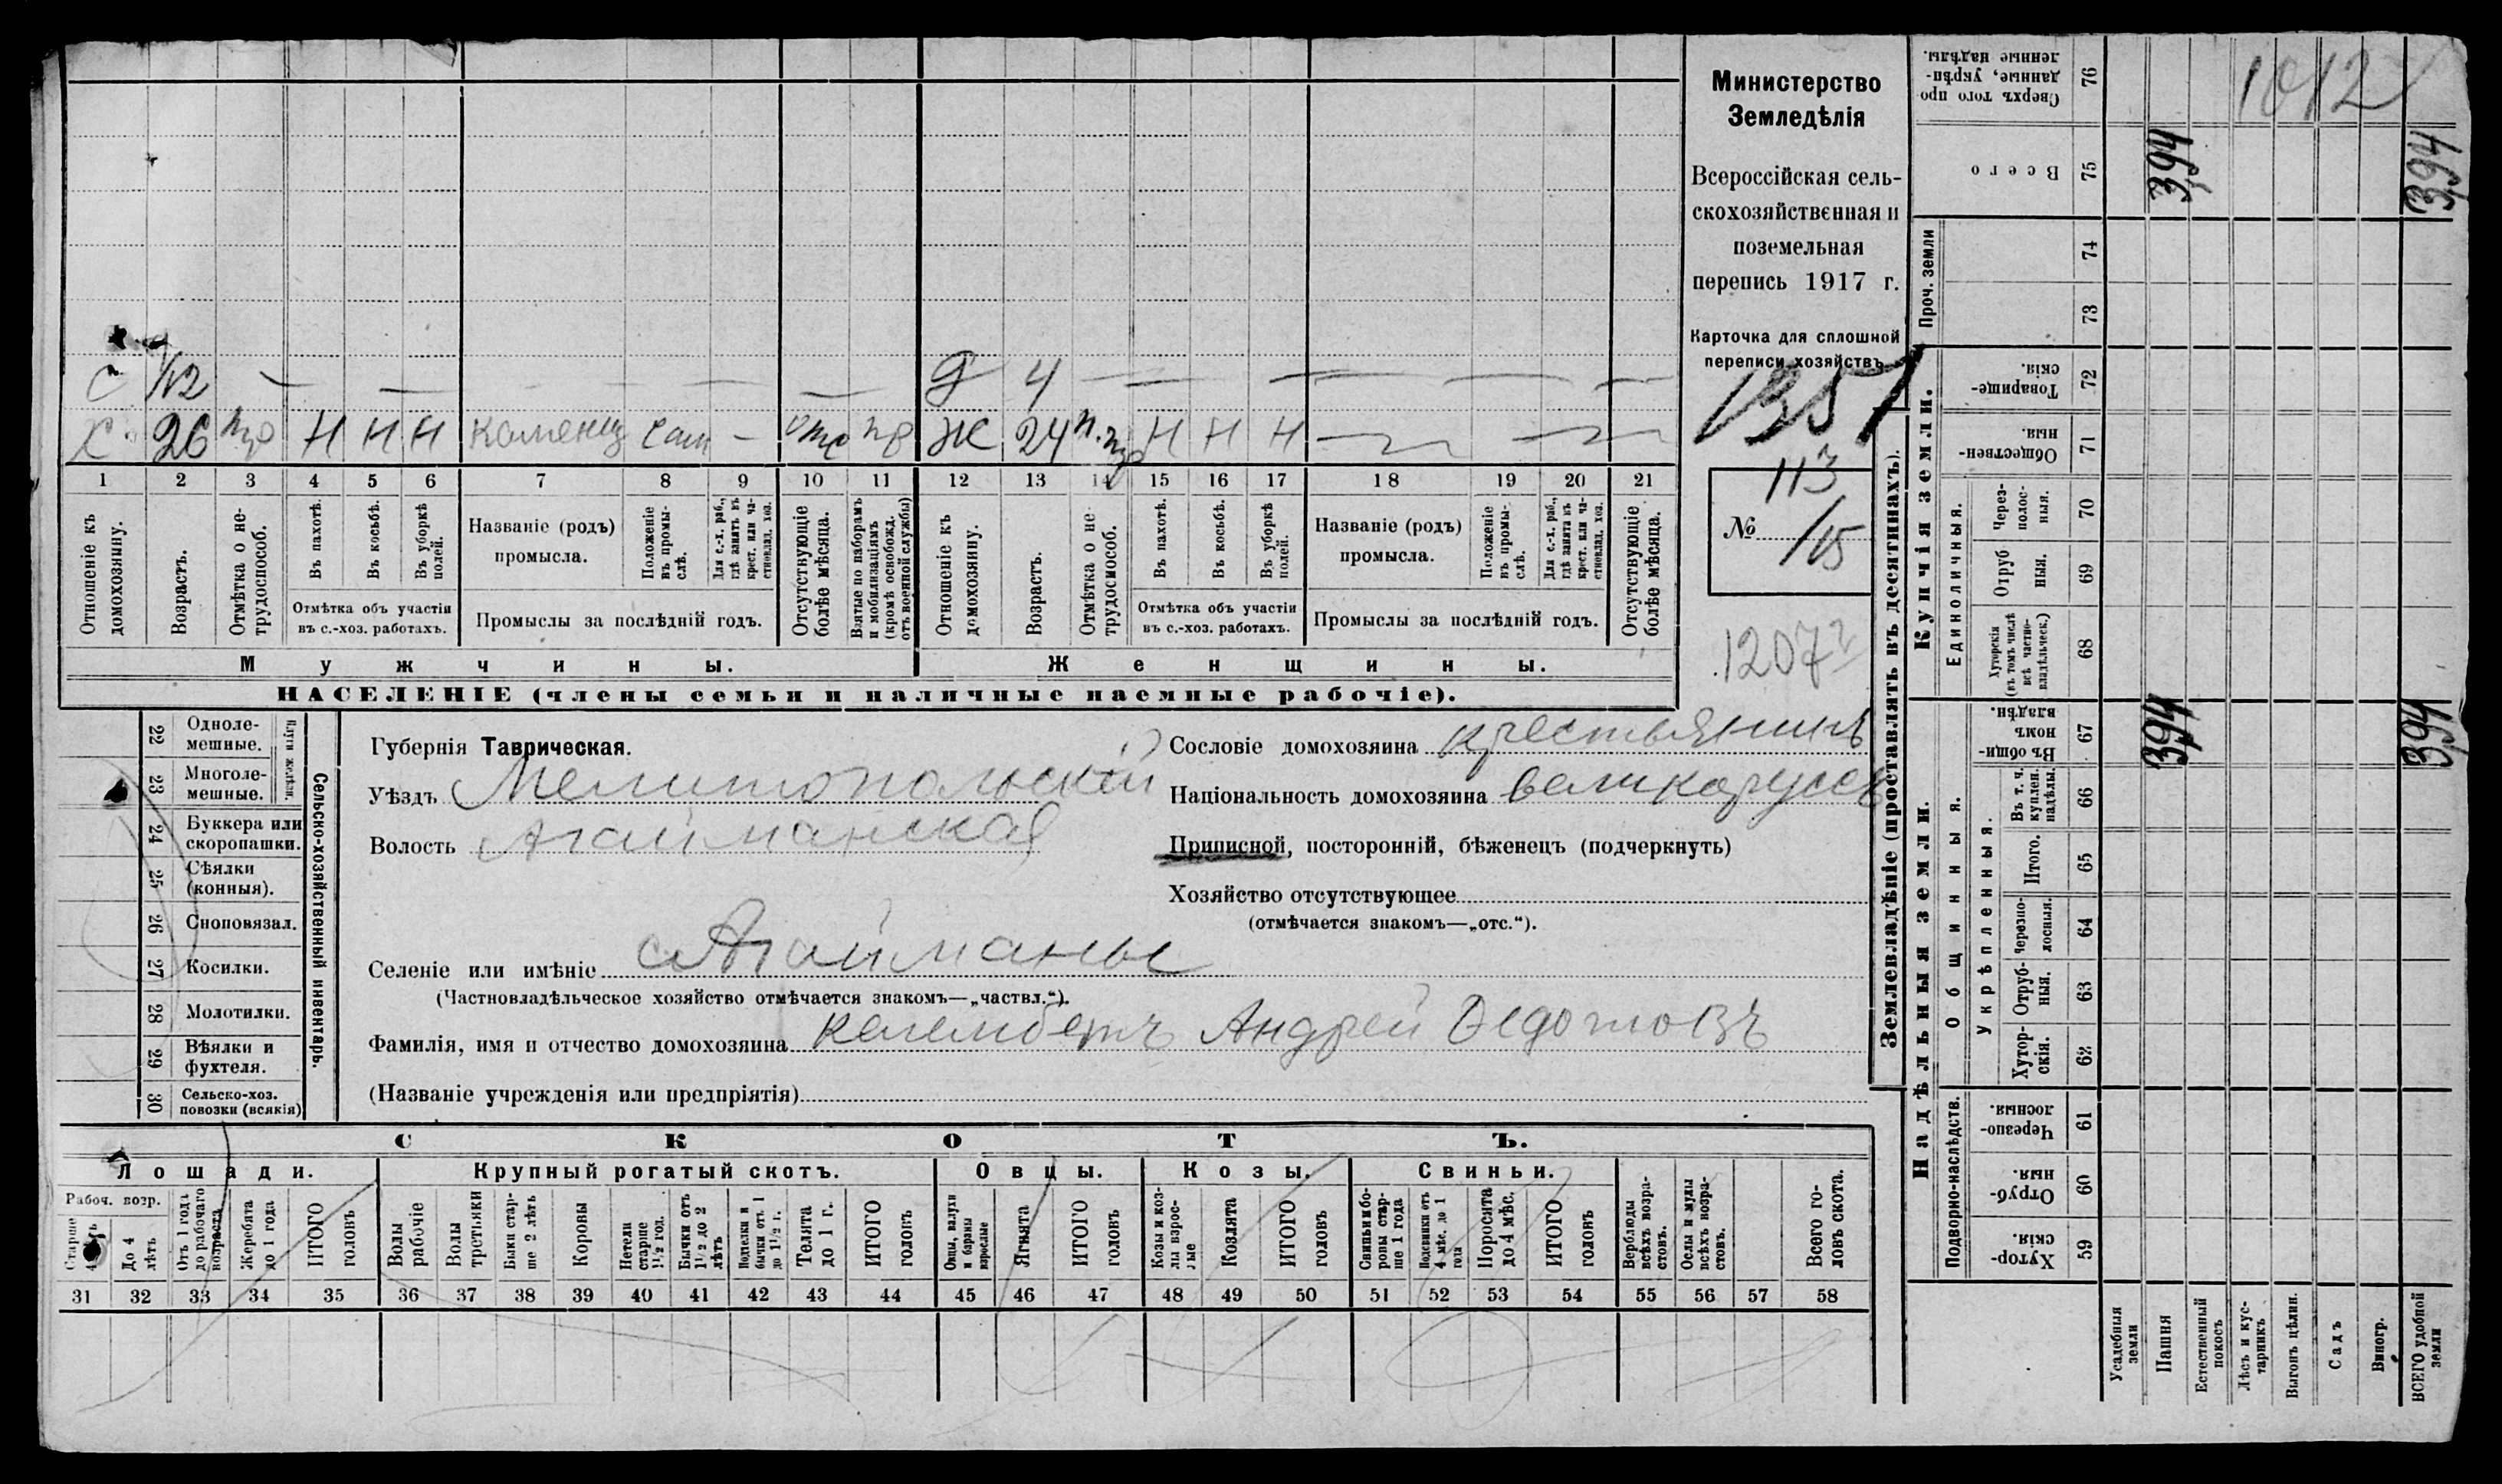 С 1/12 — — — — — — — Д 4 — — — — — —
Х. 26 Н Н Н сам — отс Ж 24 Н Н Н — —
1 2 3 4 5 6 7 8 9 10 11 12 13 14 15 16 17 18 19 20 21
Отношеніе къ домохозяину.
Возрастъ.
Отмѣтка о не-
трудоспособ.
Въ пахотѣ.
Въ косьбѣ.
Въ уборкѣ полей.
Отмѣтка объ участіи
въ с.-хоз. работахъ.
Названіе (родъ)
промысла.
Положеніе въ промы-
слѣ.
Для с.-х. раб., гдѣ занятъ въ крест. или ча-
стновлад. хоз.
Промыслы за послѣдній годъ.
Отсутствующіе болѣе мѣсяца.
Взятые по наборамъ и мобилизаціямъ (кромѣ освобожд. отъ военной службы)
Отношеніе къ домохозяину.
Возрастъ.
Отмѣтка о не
трудоспособ.
Въ пахотѣ.
Въ косьбѣ.
Въ уборкѣ полей.
Отмѣтка объ участіи
въ с.-хоз. работахъ.
Названіе (родъ)
промысла.
Положеніе въ промы-
слѣ.
Для с.-х. раб., гдѣ занята въ крест. или ча-
стновлад. хоз.
Промыслы за послѣдній годъ.
Отсутствующіе болѣе мѣсяца.
Мужчины.
Женщины.
НАСЕЛЕНІЕ (члены семьи и наличные наемные рабочіе).
Министерство
Земледѣлія
Всероссійская сель-
скохозяйственная и
поземельная
перепись 1917 г.
Карточка для сплошной
переписи хозяйствъ
1351
№ 113
/15
1207
22 Одноле-
мешные.
23 Многоле-
мешные.
Плуги желѣзн.
24 Буккера или
скоропашки.
25 Сѣялки
(конныя).
26 Сноповязал.
27 Косилки.
28 Молотилки.
29 Вѣялки и
фухтеля.
30 Сельско-хоз.
повозки (всякія)
Сельско-хозяйственный инвентарь.
Губернія Таврическая.
Уѣздъ Мелитопольскій
Волость Агайманская
Селеніе или имѣніе с Агайманы
(Частновладѣльческое хозяйство отмѣчается знакомъ—„частвл.“).
Фамилія, имя и отчество домохозяина Келембетъ Андрей Ѳедотовъ
(Названіе учрежденія или предпріятія)
Сословіе домохозяина крестьянинъ
Національность домохозяина великоруссъ
Приписной, посторонній, бѣженецъ (подчеркнуть)
Хозяйство отсутствующее
(отмѣчается знакомъ—„отс.“).
СКОТЪ.
Лошади.
Крупный рогатый скотъ.
Овцы.
Козы.
Свиньи.
Рабоч. возр.
Старше 4
До 4 лѣтъ
Отъ 1 года до рабочаго возраста
Жеребята до 1 года
ИТОГО головъ
Волы рабочіе
Волы третьяки
Быки стар-
ше 2 лѣтъ
Коровы
Нетели старше 1½ год.
Бычки отъ 1½ до 2 лѣтъ
Подтелки и бычки отъ 1 до 1½ г.
Телята до 1 г.
ИТОГО головъ
Овцы, валухи и бараны взрослые
Ягнята
ИТОГО головъ
Козы и коз-
лы взрос-
лые
Козлята
ИТОГО головъ
Свиньи и бо-
ровы стар-
ше 1 года
Подсвинки отъ 4 мѣс. до 1 года
Поросята до 4 мѣс.
ИТОГО головъ
Верблюды всѣхъ возра-
стовъ.
Ослы и мулы всѣхъ возра-
стовъ.
Всего го-
ловъ скота.
31 32 33 34 35 36 37 38 39 40 41 42 43 44 45 46 47 48 49 50 51 52 53 54 55 56 57 58
Землевладѣніе (проставлять въ десятинахъ).
Надѣльныя земли.
Купчія земли.
Проч. земли
Подворно-наслѣдств.
Общинныя.
Укрѣпленныя.
Единоличныя.
Сверхъ того про
данные, укрѣп-
ленные надѣлы. 76 1012
Всего 75 394 394
74
73
Товарище-
скія. 72
Обществен-
ныя. 71
Через-
полос-
ныя. 70
Отруб
ныя. 69
Хуторскія
(въ томъ числѣ
всѣ частно-
владѣльческ.) 68
Въ общи-
номъ
владѣн. 67 394 394
Въ т. ч.
куплен.
надѣлы. 66
Итого. 65
Черезпо-
лосныя. 64
Отруб-
ныя. 63
Хутор-
скія. 62
Черезпо-
лосныя. 61
Отруб-
ныя. 60
Хутор-
скія. 59
Усадебныя земли
Пашня
Естественный покосъ
Лѣсъ и кус-
тарникъ
Выгонъ цѣлин.
Садъ
Виногр.
ВСЕГО удобной земли